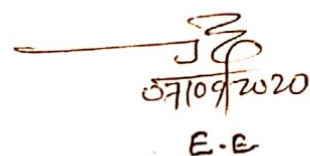 07/09/2020
E.E